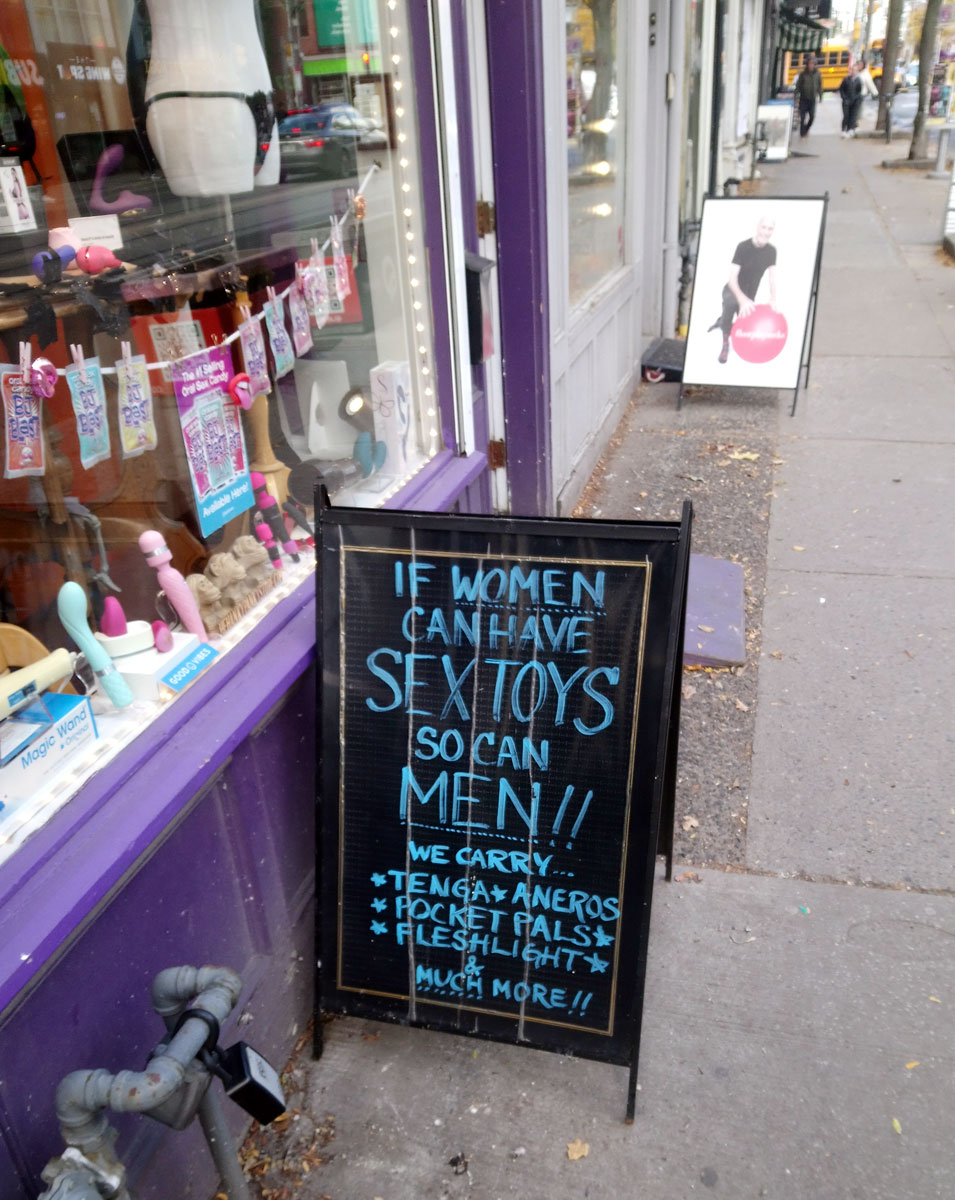 IF WOMEN
CAN HAVE
SEX TOYS
SO CAN
MEN!!
WE CARRY...
*TENGA* ANEROS
*POCKET PALS*
*FLESHLIGHT*
&
MUCH MORE!!
The #1 Selling
Oral Sex Candy
Available Here!
GOOD VIBES
Magic Wand
Original
WING SP
SUB